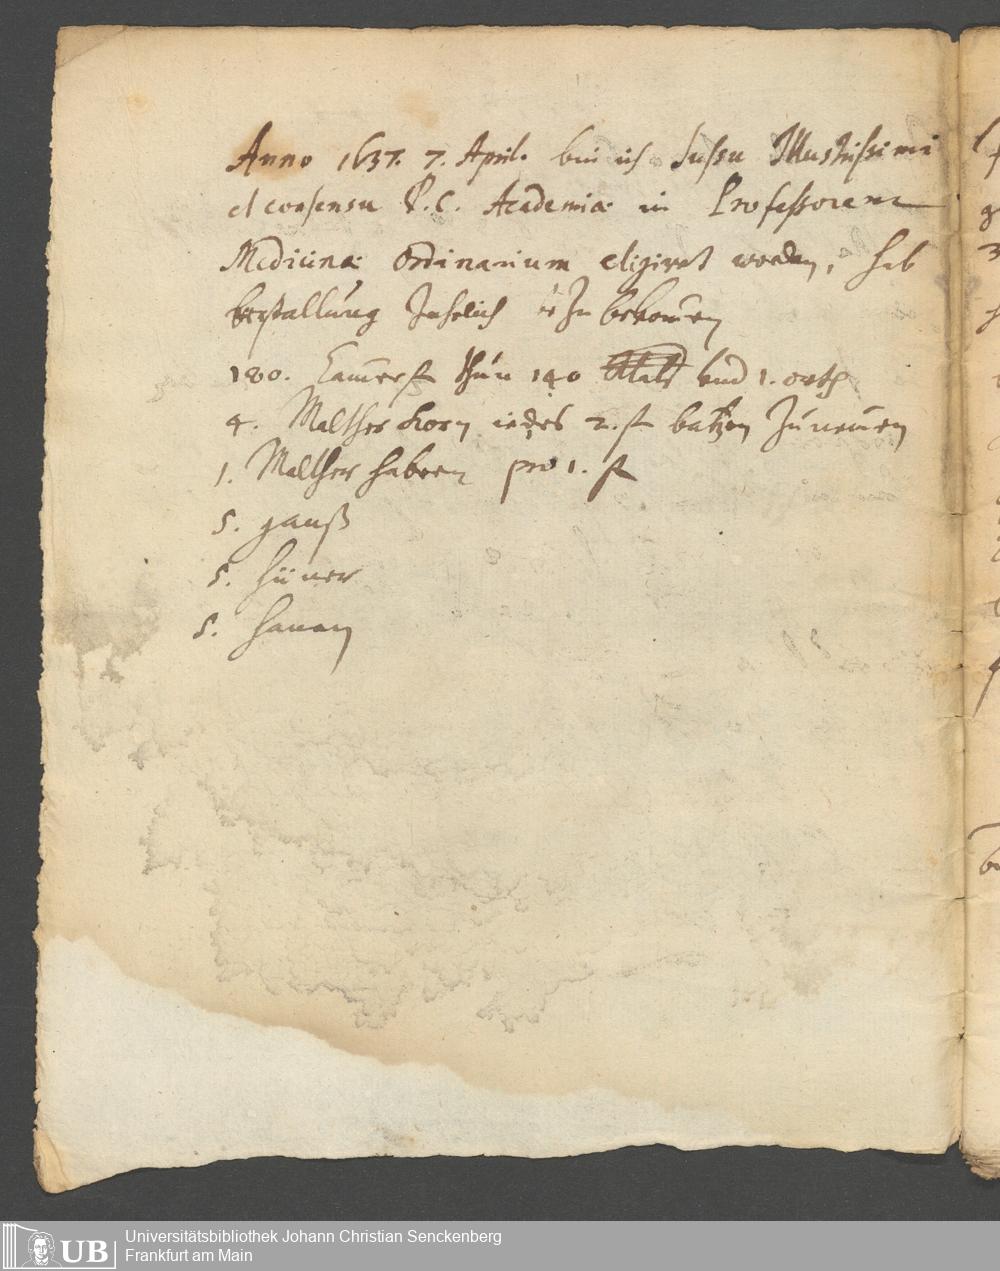 Anno 1637. 7. April. bin ich Jussu Illustrissimi
et consensu P.C. Academiæ in Professorem
Medicinæ Ordinarium eligiret worden, hab
bestallung Jahrlich zu bekomen
180. Camer fl thun 140 und 1. orth
4. Malther Korn iedes 2. fl batzen zu nemen
1. Malther habern pro 1. fl
5. gauß
5. hüner
5. hanen
UB
Universitätsbibliothek Johann Christian Senckenberg
Frankfurt am Main